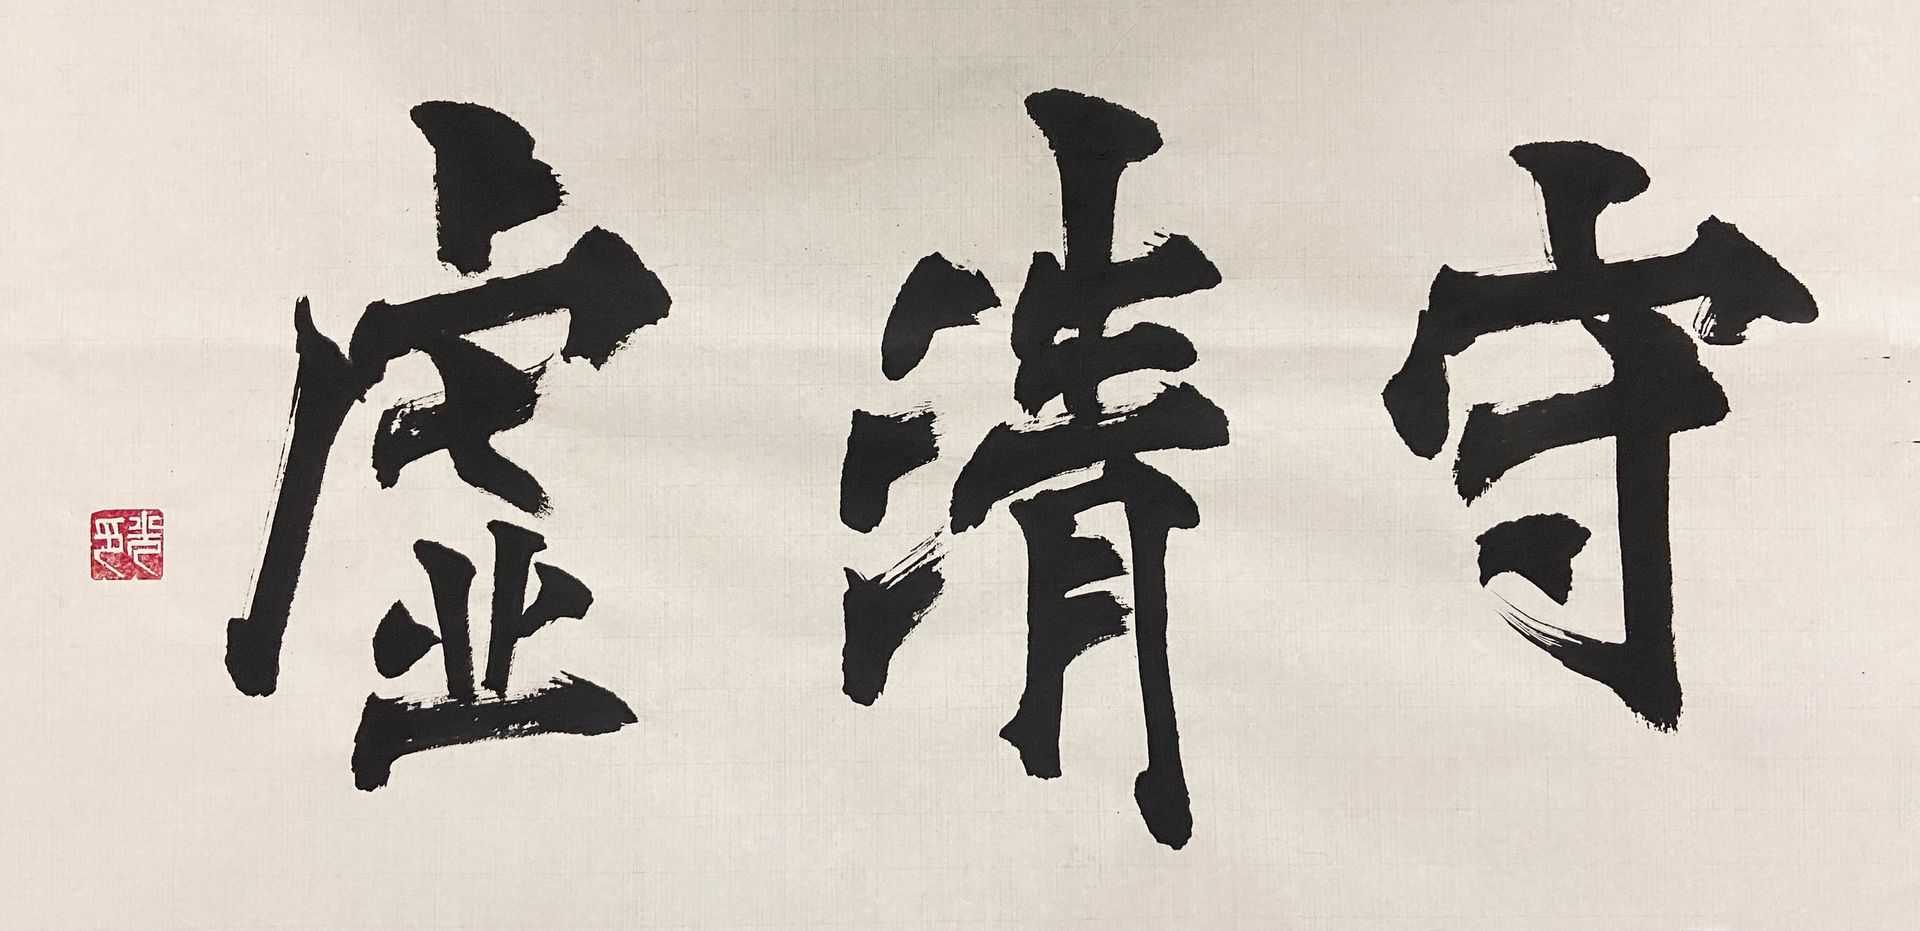 守清虛